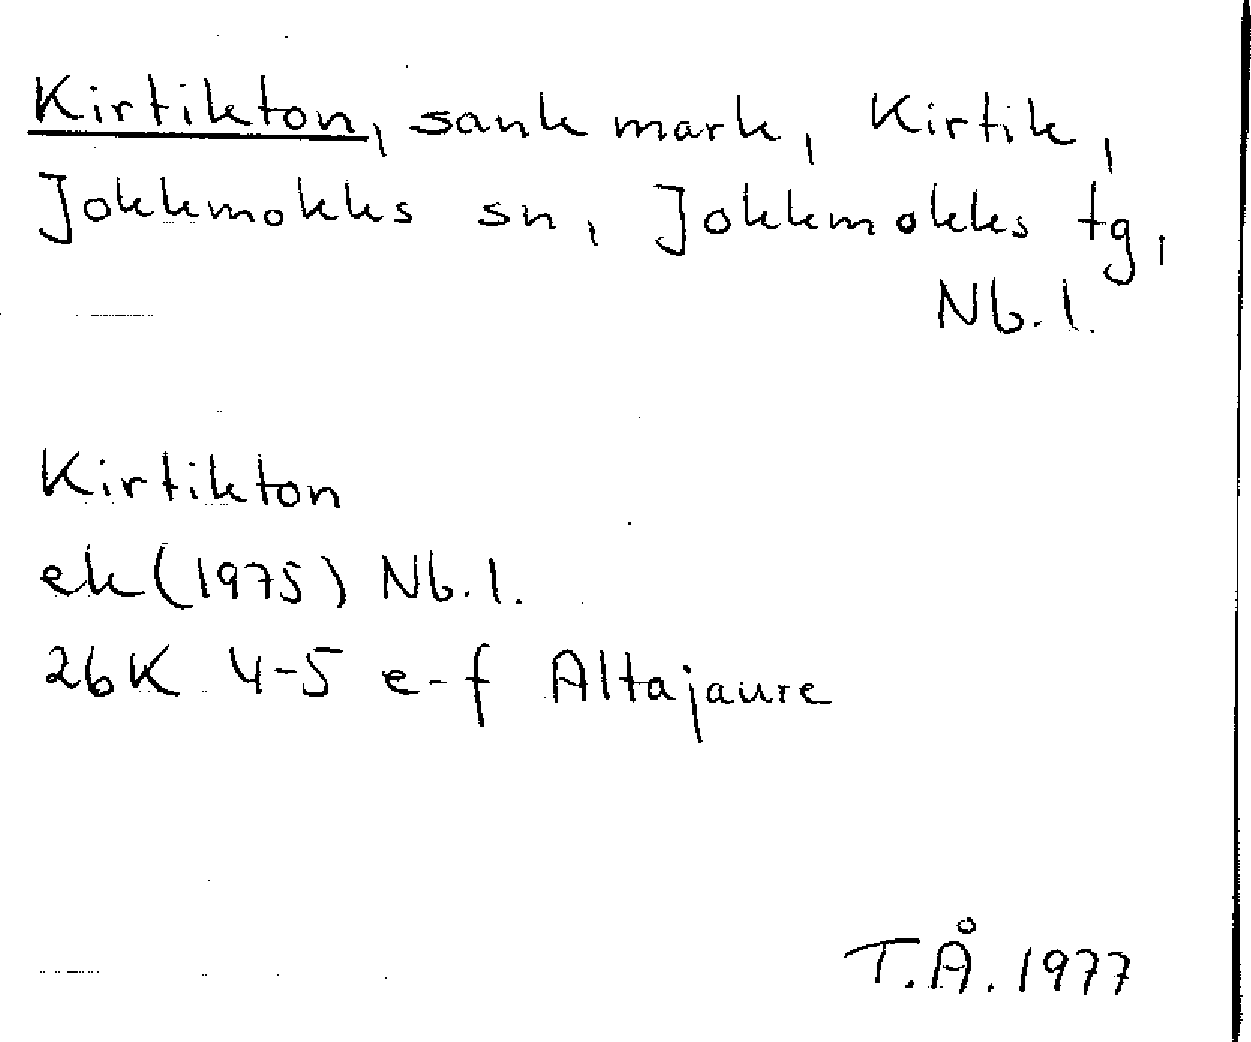 Kirtikton, sank mark, Kirtik,
Jokkmokks sn, Jokkmokks tg,
Nb. l.
Kirtikton
ek (1975) Nb. l.
26K 4-5 e-f Altajaure
T.Å. 1977